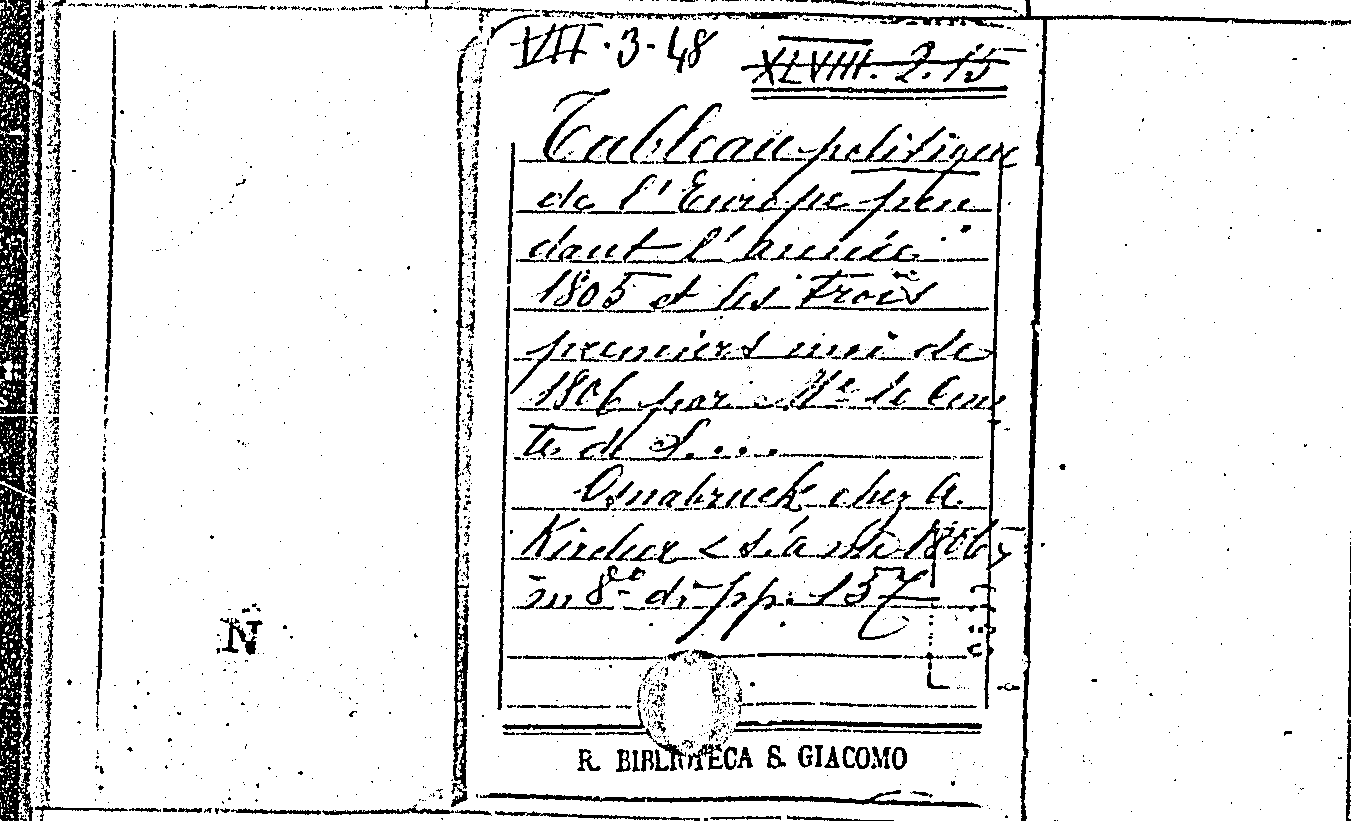 VII.3.48 XLVIII.2.15
Tableau politique
de l'Europe pen
dant l'année
1805 et les trois
premiers moi de
1806 par Mr le Com
te de S....
Osnabruck chez A.
Kircher < s.a ma 1806>
in 8° di pp. 157
N
R. BIBLIOTECA S. GIACOMO